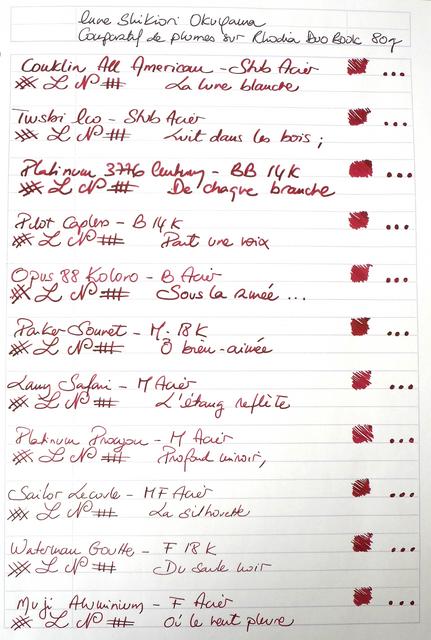 Encre Shikiori Okuyama
Comparatif de plumes sur Rhodia Duo Book 80g
Conklin All American - Stub Acier
L N La lune blanche
Twsbi Eco - Stub Acier
L N Luit dans les bois ;
Platinum 3776 Century - BB 14K
L N De chaque branche
Pilot Capless - B 14K
L N Part une voix
Opus 88 Koloro - B Acier
L N Sous la ramée ...
Parker Sonnet - M. 18K
L N Ô bien-aimée
Lamy Safari - M Acier
L N L'étang reflète
Platinum Procyon - M Acier
L N Profond miroir,
Sailor Lecoule - MF Acier
L N La silhouette
Waterman Goutte - F 18K
L N Du saule noir
Muji Aluminium - F Acier
L N Où le vent pleure